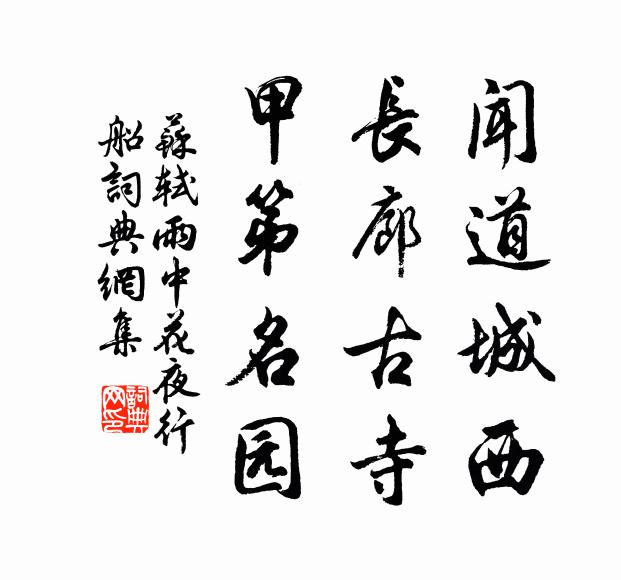 闻道城西
長廊古寺
甲第名园
蘇軾雨中花夜行
船詞典網集
詞典网印